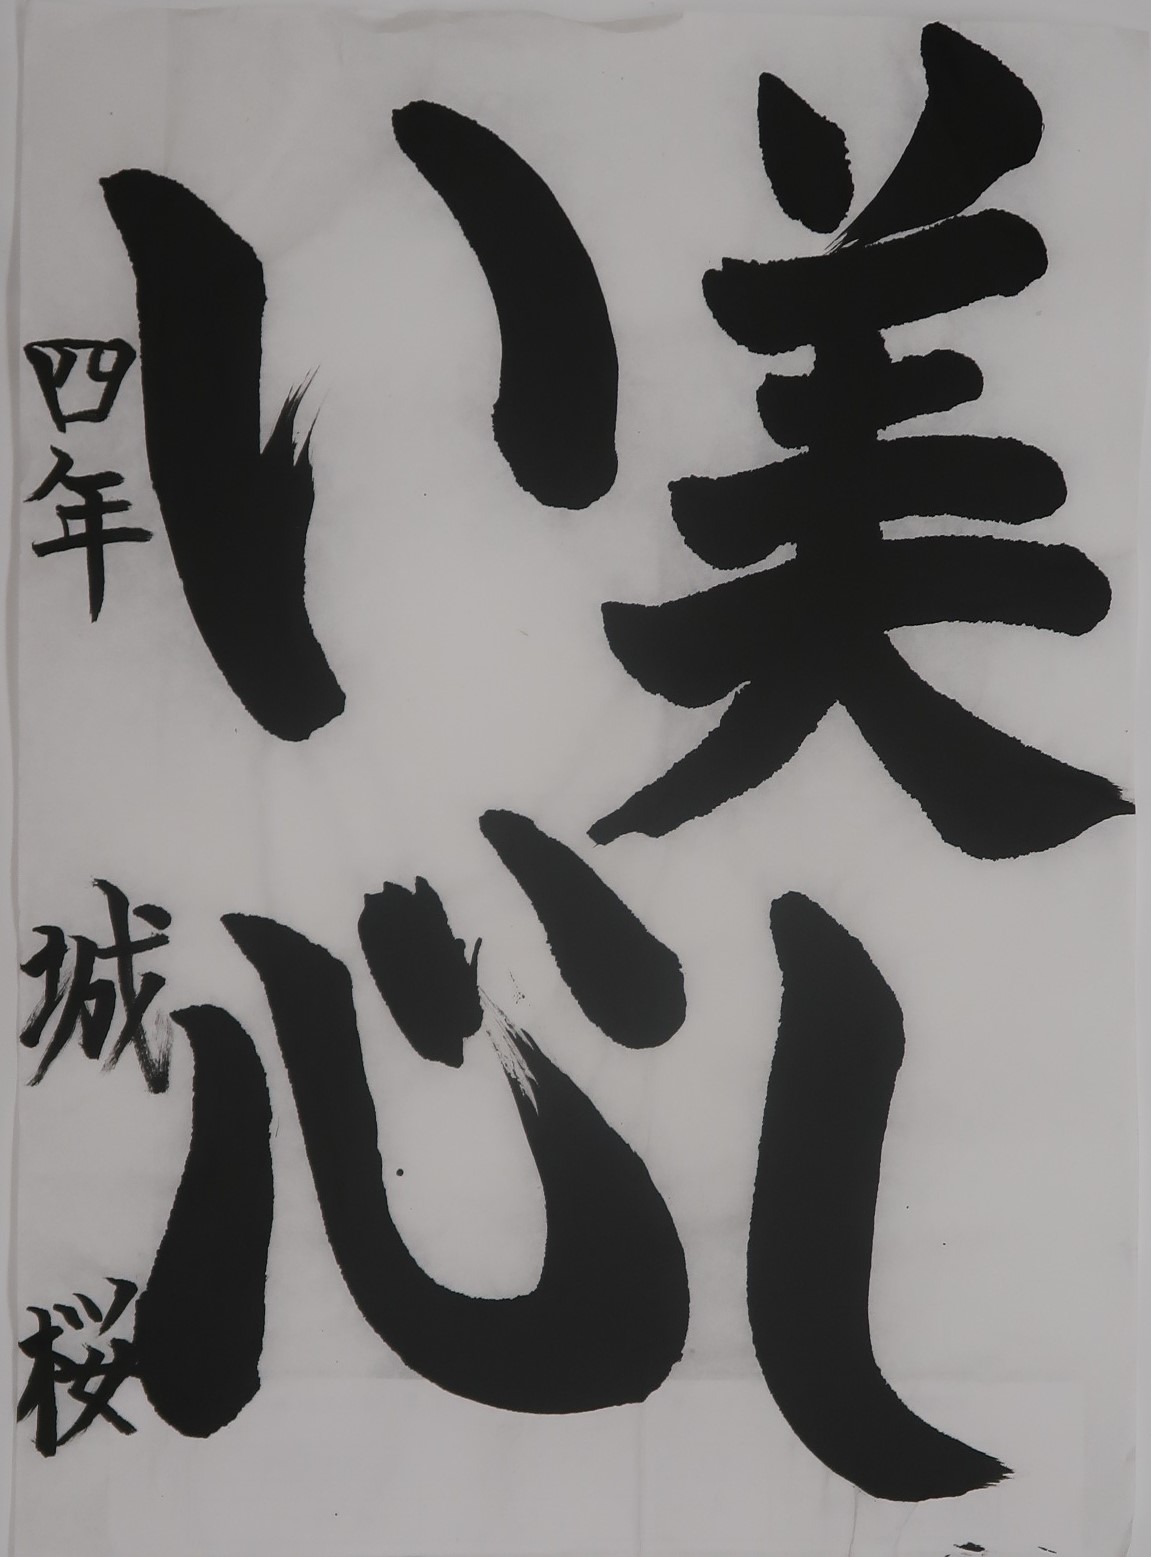 美し
い心
四年 城 桜